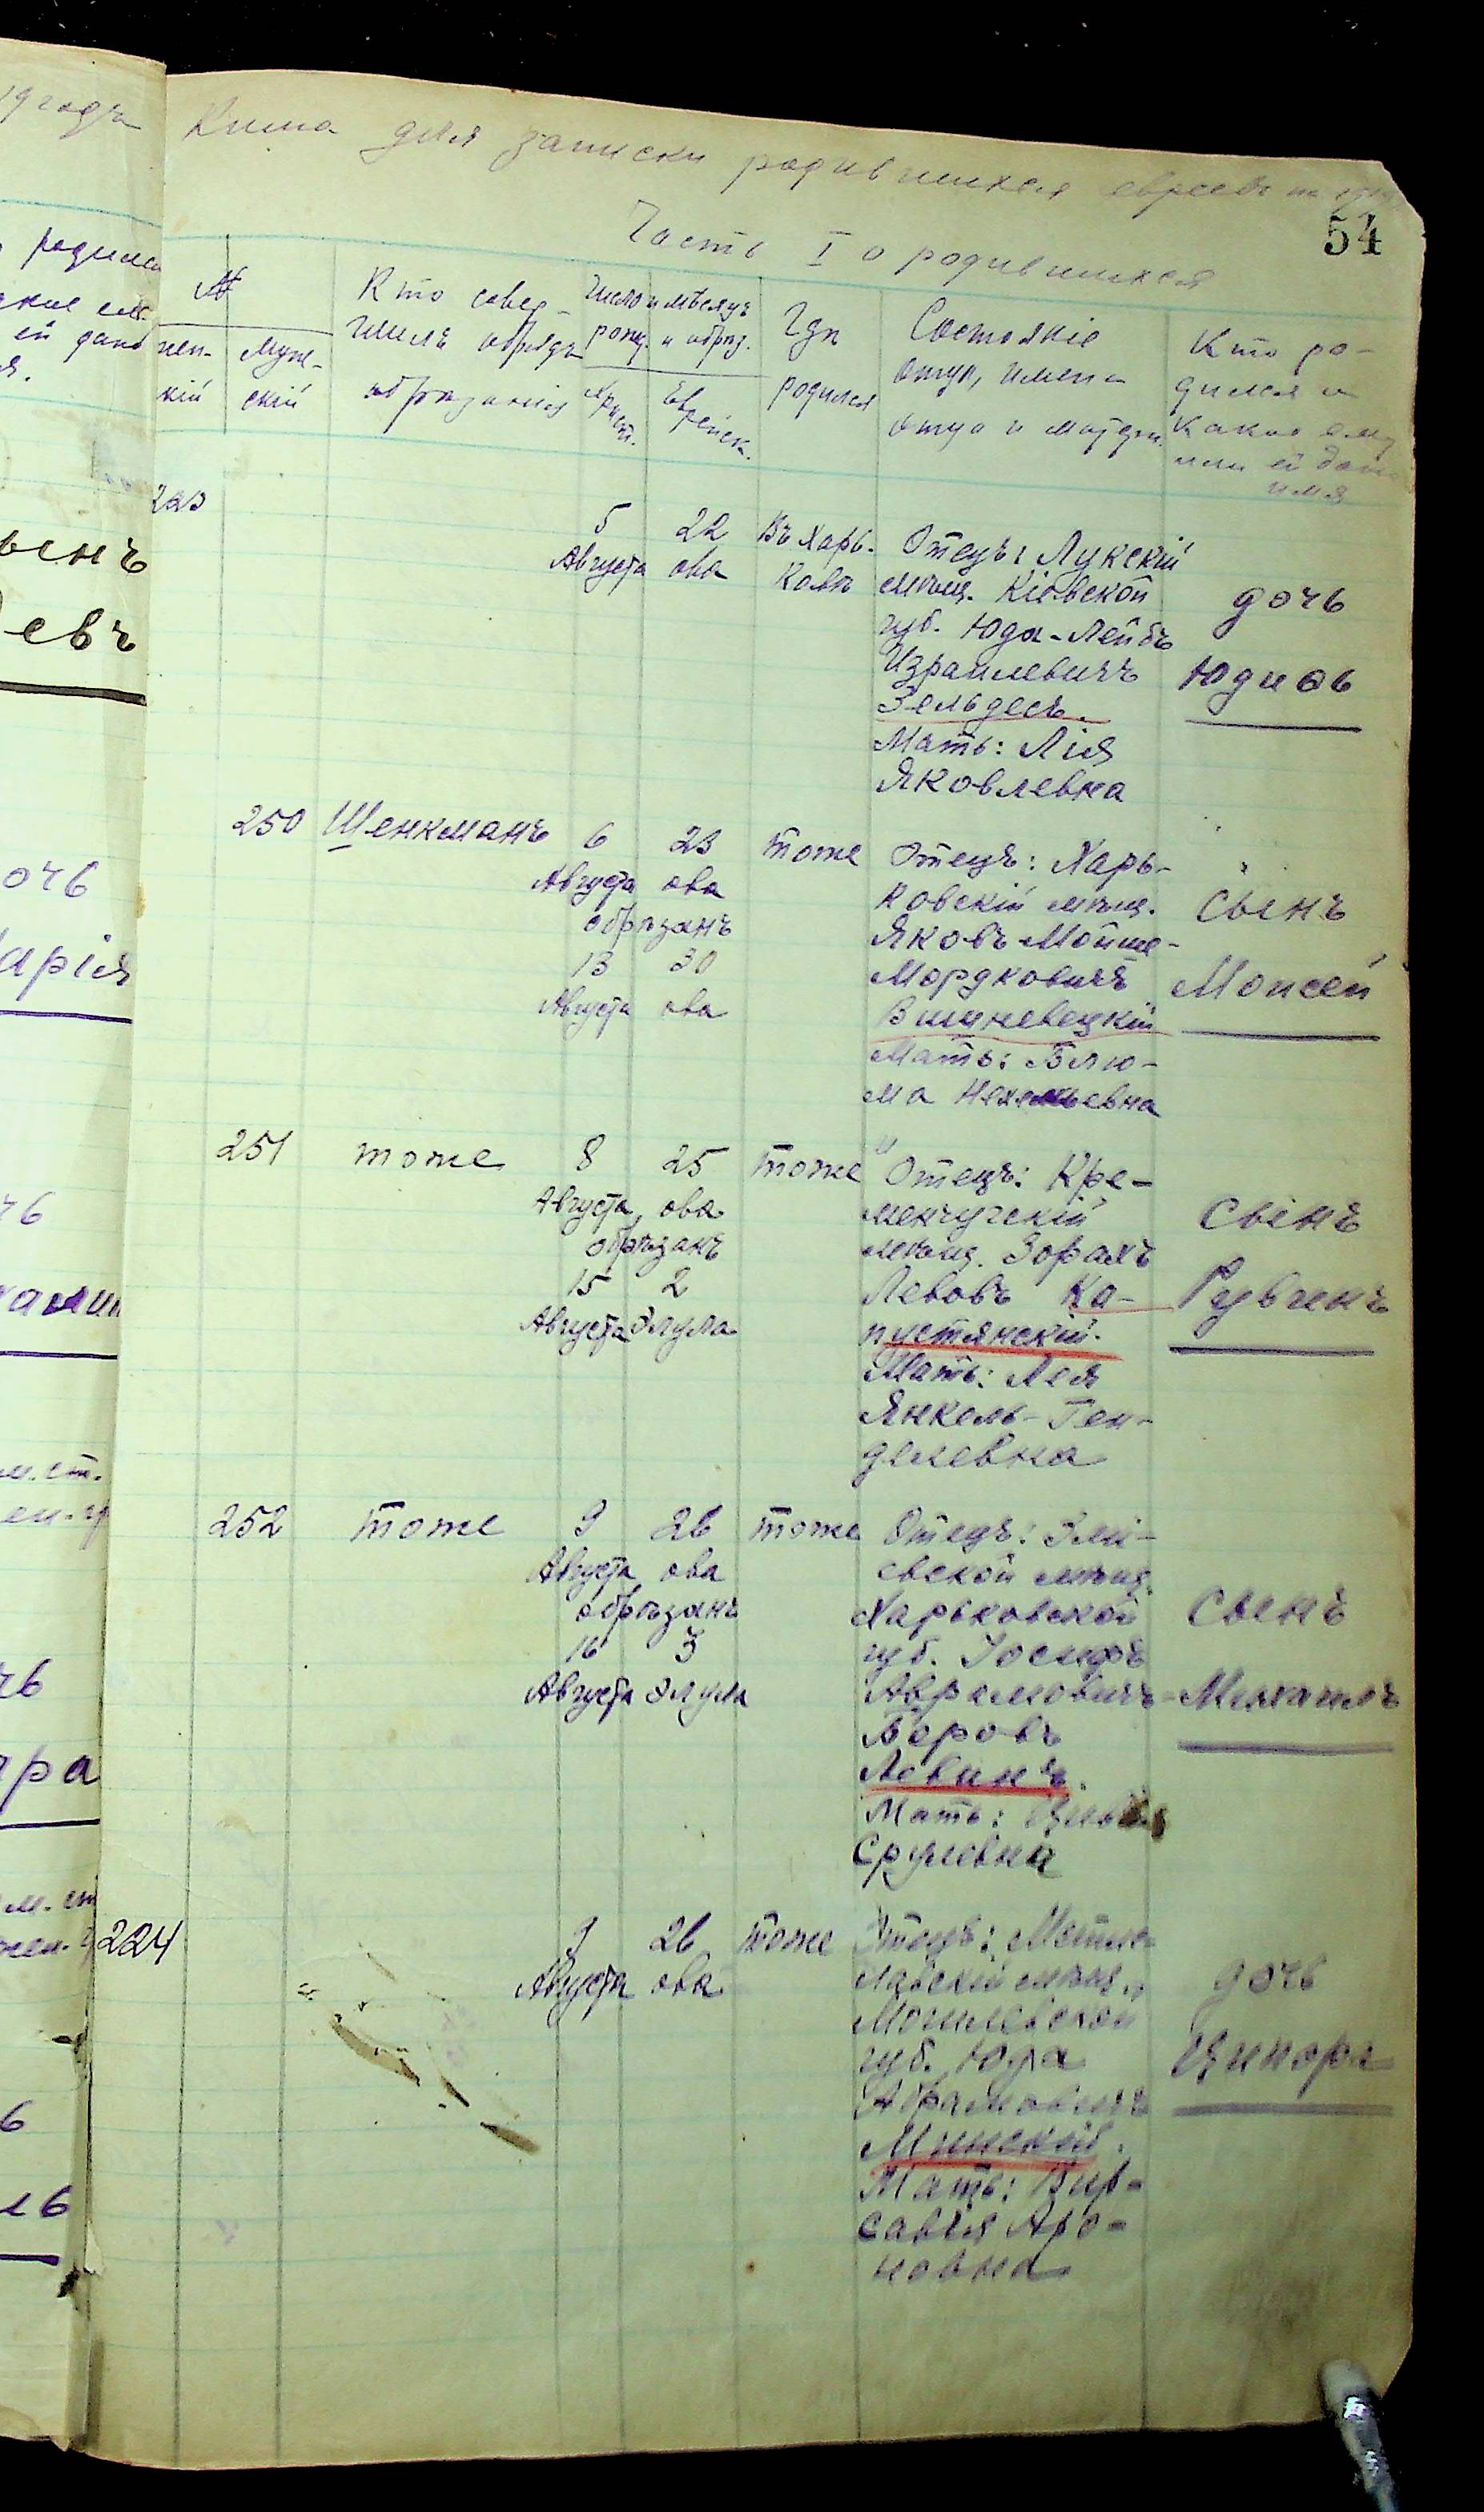 Книга для записки родившихся евреевъ на
54
Часть I о родившихся
№
Жен-
скій
Муже-
скій
Кто совер-
шилъ обрядъ
обрѣзанія
Число и мѣсяцъ
рожд. и обрѣз.
Христ.
Еврейск.
Гдѣ
родился
Состояніе
отца, имена
отца и матери
Кто ро-
дился и
какое ему
или ей дано
имя
223
5
Августа
22
ова
Въ Харь-
ковѣ
Отецъ: Лукскій
мѣщ. Кіевской
губ. Юда-Лейбъ
Израилевичъ
Зельдесъ.
Мать: Лія
Яковлевна
дочь
Юдиѳь
250
Шенкманъ
6
Августа
23
ова
обрѣзанъ
13
Августа
30
ова
тоже
Отецъ: Харь-
ковскій мѣщ.
Яковъ Мойше-
Мордковичъ
Вишневецкій
Мать: Блю-
ма
Сынъ
Моисей
251
тоже
8
Августа
25
ова
обрѣзанъ
15
Августа
2
Элула
тоже
Отецъ: Кре-
менчугскій
мѣщ. Зорахъ
Левовъ Ка-
пустянскій.
Мать: Лея
Янкель-Ген-
делевна
Сынъ
Рувинъ
252
тоже
9
Августа
26
ова
обрѣзанъ
16
Августа
3
Элула
тоже
Отецъ: Змі-
евской мѣщ.
Харьковской
губ. Іосифъ
Абрамовичъ-
Беровъ
Левинъ.
Мать:
Срулевна
Сынъ
Михаилъ
224
9
Августа
26
ова
тоже
Отецъ: Мстис-
лавскій мѣщ.
Могилевской
губ. Юда
Абрамовичъ
Минскій.
Мать: Вир-
савія Аро-
новна
дочь
Ципора